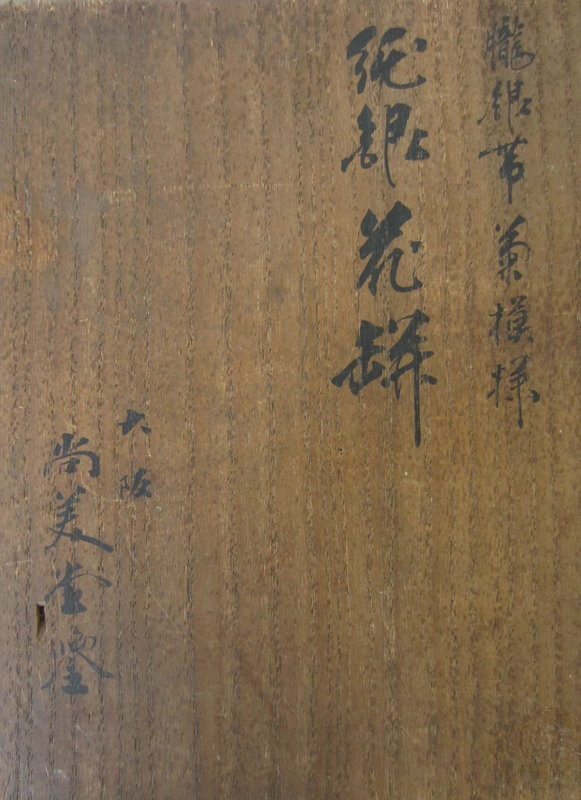 朧銀帯菊模様
純銀花瓶
大阪
尚美堂鑒